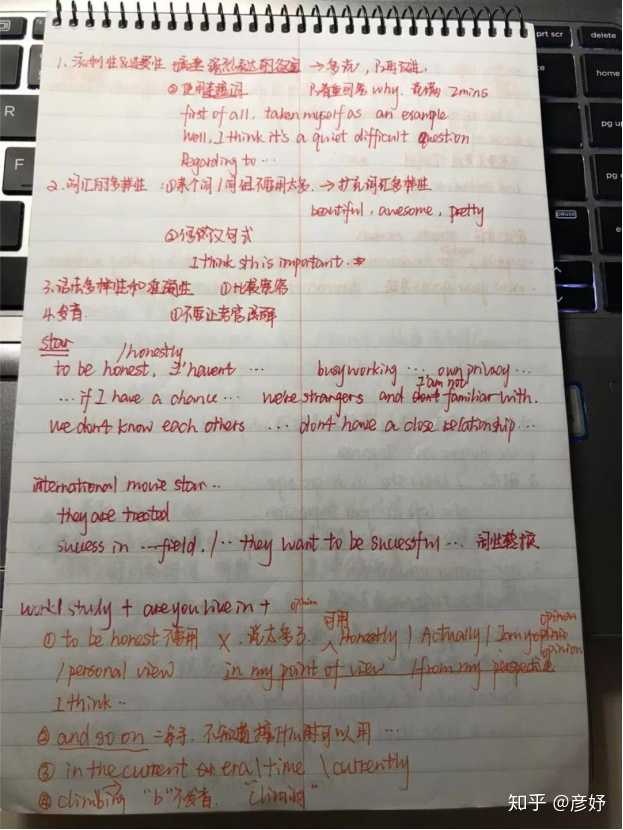 prt scr
delete
home
pg up
1. 流利性&连贯性
→多说,
②使用连接词
why. 2mins
first of all, taken myself as an example
Well, I think it's a quiet difficult question
Regarding to ...
2. 词汇的多样性: ①某个词/词组不要用太多. → 扩充词汇多样性
beautiful, awesome, pretty
②
句式
I think sth is important.
3. 语法多样性和准确性 ①
4. 发音. ①不要让考官误解
star
/honestly
to be honest, I haven't ... busy working ... own privacy...
I am not
... if I have a chance ... we're strangers and don't familiar with.
we don't know each others ... don't have a close relationship...
international movie star...
they are treated
success in ... field. /... they want to be successful ... 词性转换
work/study + are you live in +
opinion
可用
opinion
① to be honest 不要用 X. 说太多了. Honestly / Actually / In my
opinion
/personal view in my point of view /from my perspective
I think...
② and so on = 等等. 可以用 ...
③ in the current era/time \currently
④ climbing "b"不发音.
知乎 @彦妤